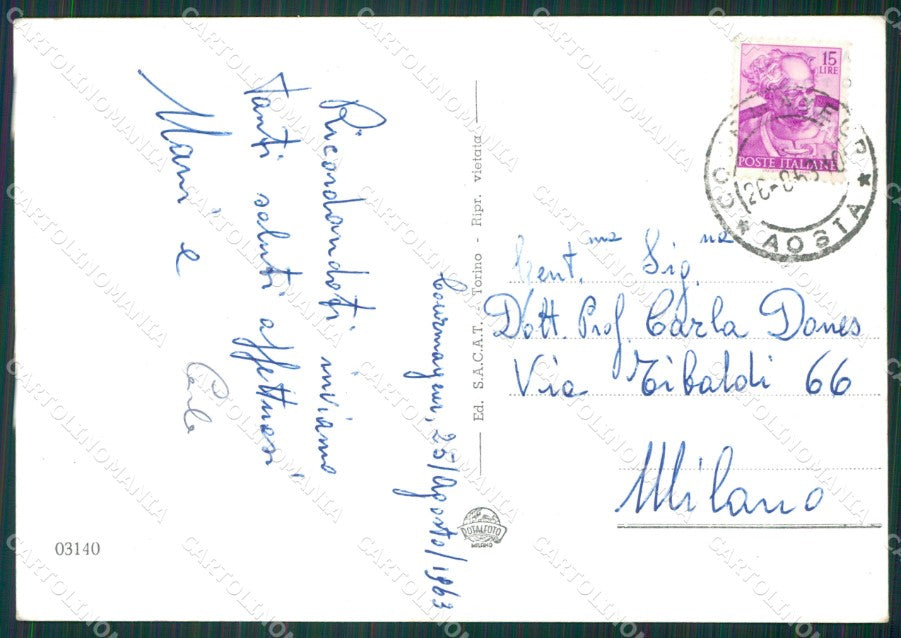 Courmayeur, 25/Agosto/1963
Ricordandoti inviamo
tanti saluti affettuosi
e
Carla
Ed. S.A.C.A.T. - Torino - Ripr. vietata
15
LIRE
POSTE ITALIANE
AOSTA
Gent.ma Sig.na
Dott. Prof. Carla Dones
Via Tibaldi 66
Milano
ROTALFOTO
MILANO
03140
CARTOLINOMANIA